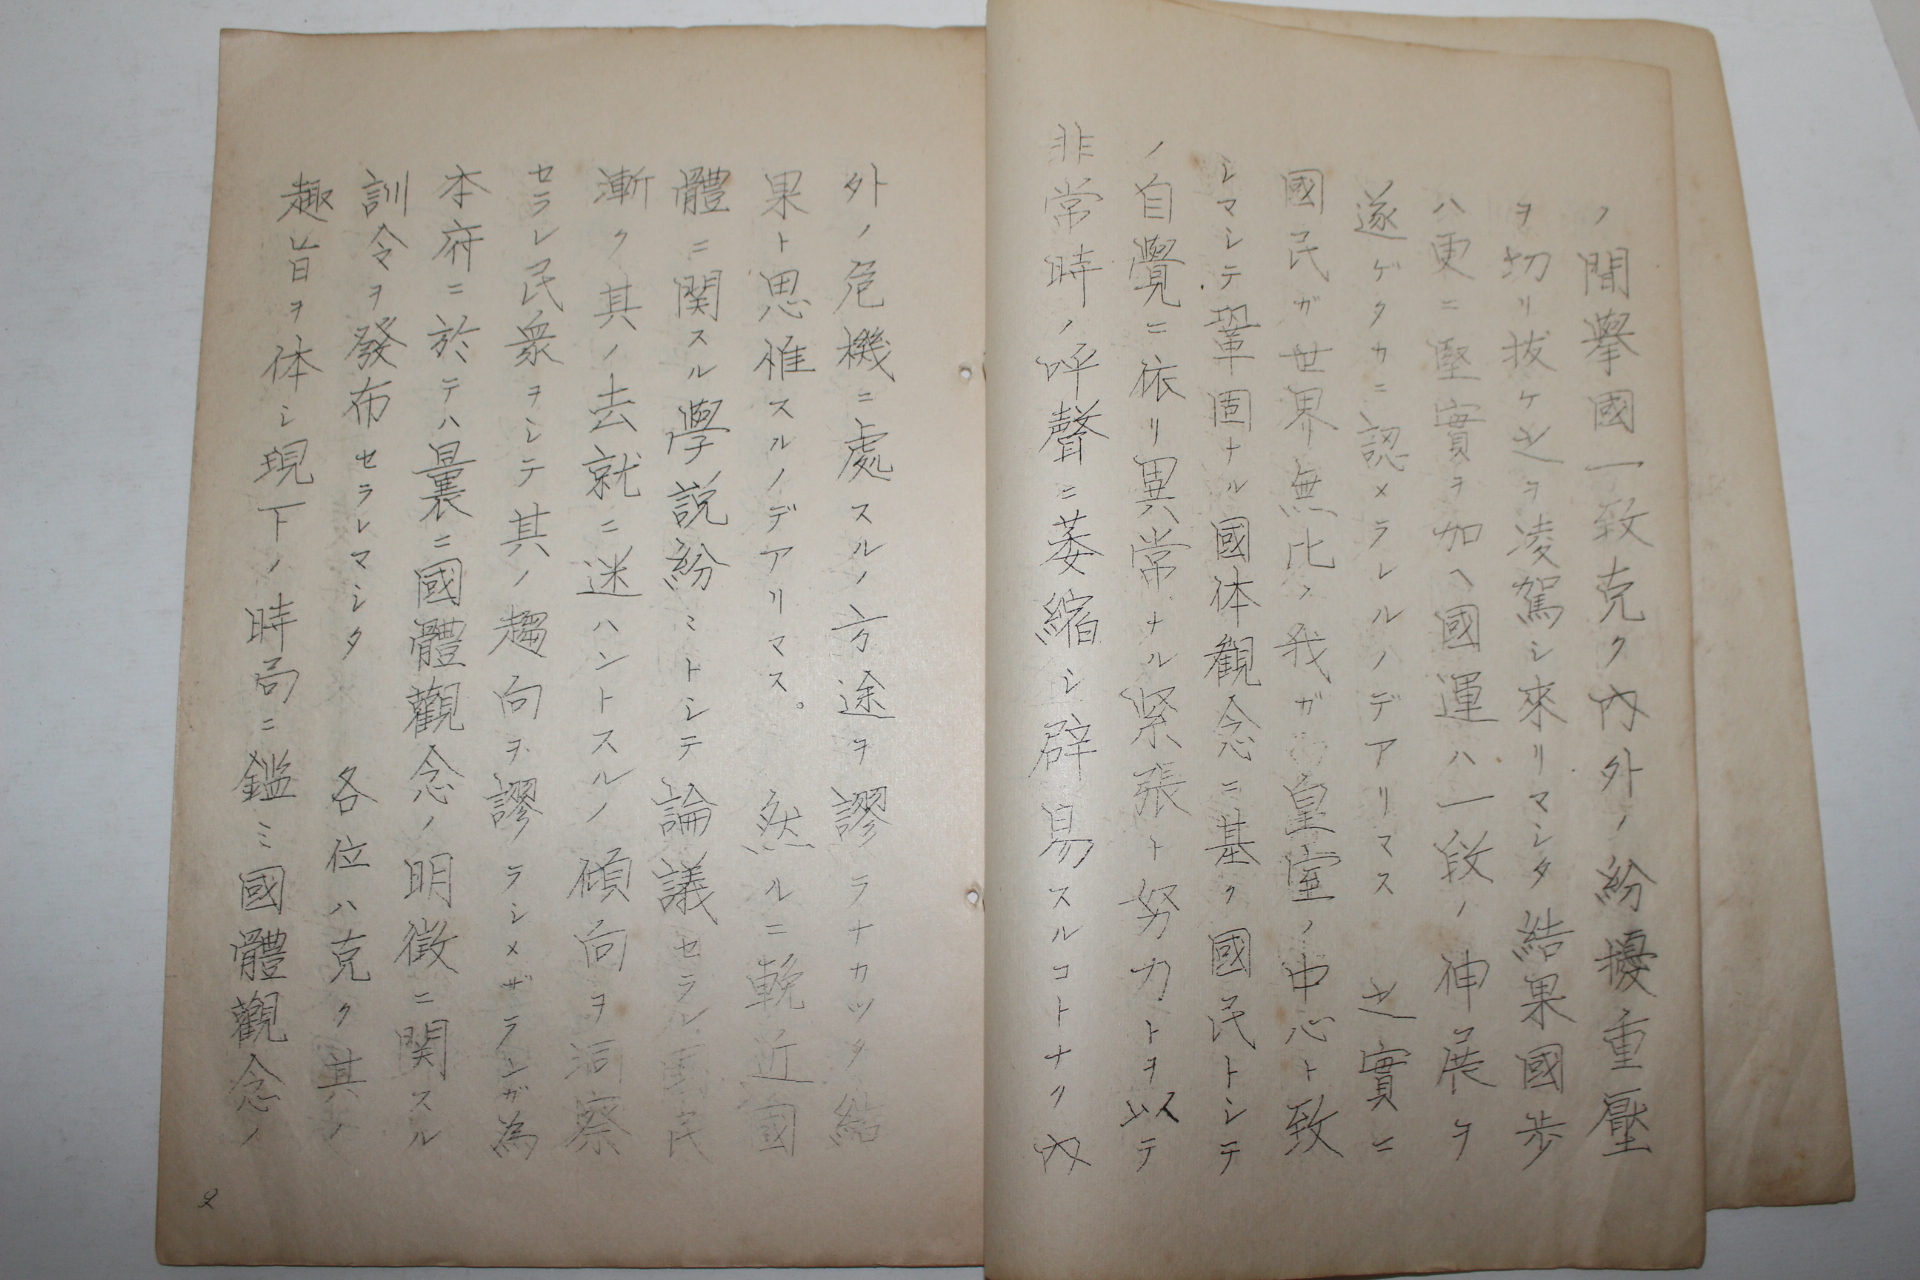 ノ間擧國一致克ク内外ノ紛擾重壓
ヲ切リ抜ケ之ヲ凌駕シ來リマシタ結果國歩
ハ更ニ堅實ヲ加ヘ國運ハ一段ノ伸展ヲ
遂ゲタカニ認メラレルノデアリマス 之實ニ
國民ガ世界無比ノ我ガ皇室ノ中心ト致
シマシテ鞏固ナル國体観念ニ基ク國民トシテ
ノ自覺ニ依リ異常ナル緊張ト努力トヲ以テ
非常時ノ呼聲ニ萎縮シ辟易スルコトナク内
外ノ危機ニ處スルノ方途ヲ謬ラナカツタ結
果ト思惟スルノデアリマス。 然ルニ輓近國
體ニ関スル學説紛ミトシテ論議セラレ國民
漸ク其ノ去就ニ迷ハントスルノ傾向ヲ洞察
セラレ民衆ヲシテ其ノ趨向ヲ謬ラシメザランガ為
本府ニ於テハ曩ニ國體觀念ノ明徴ニ関スル
訓令ヲ發布セラレマシタ 各位ハ克ク其ノ
趣旨ヲ体シ現下ノ時局ニ鑑ミ國體觀念ノ
2